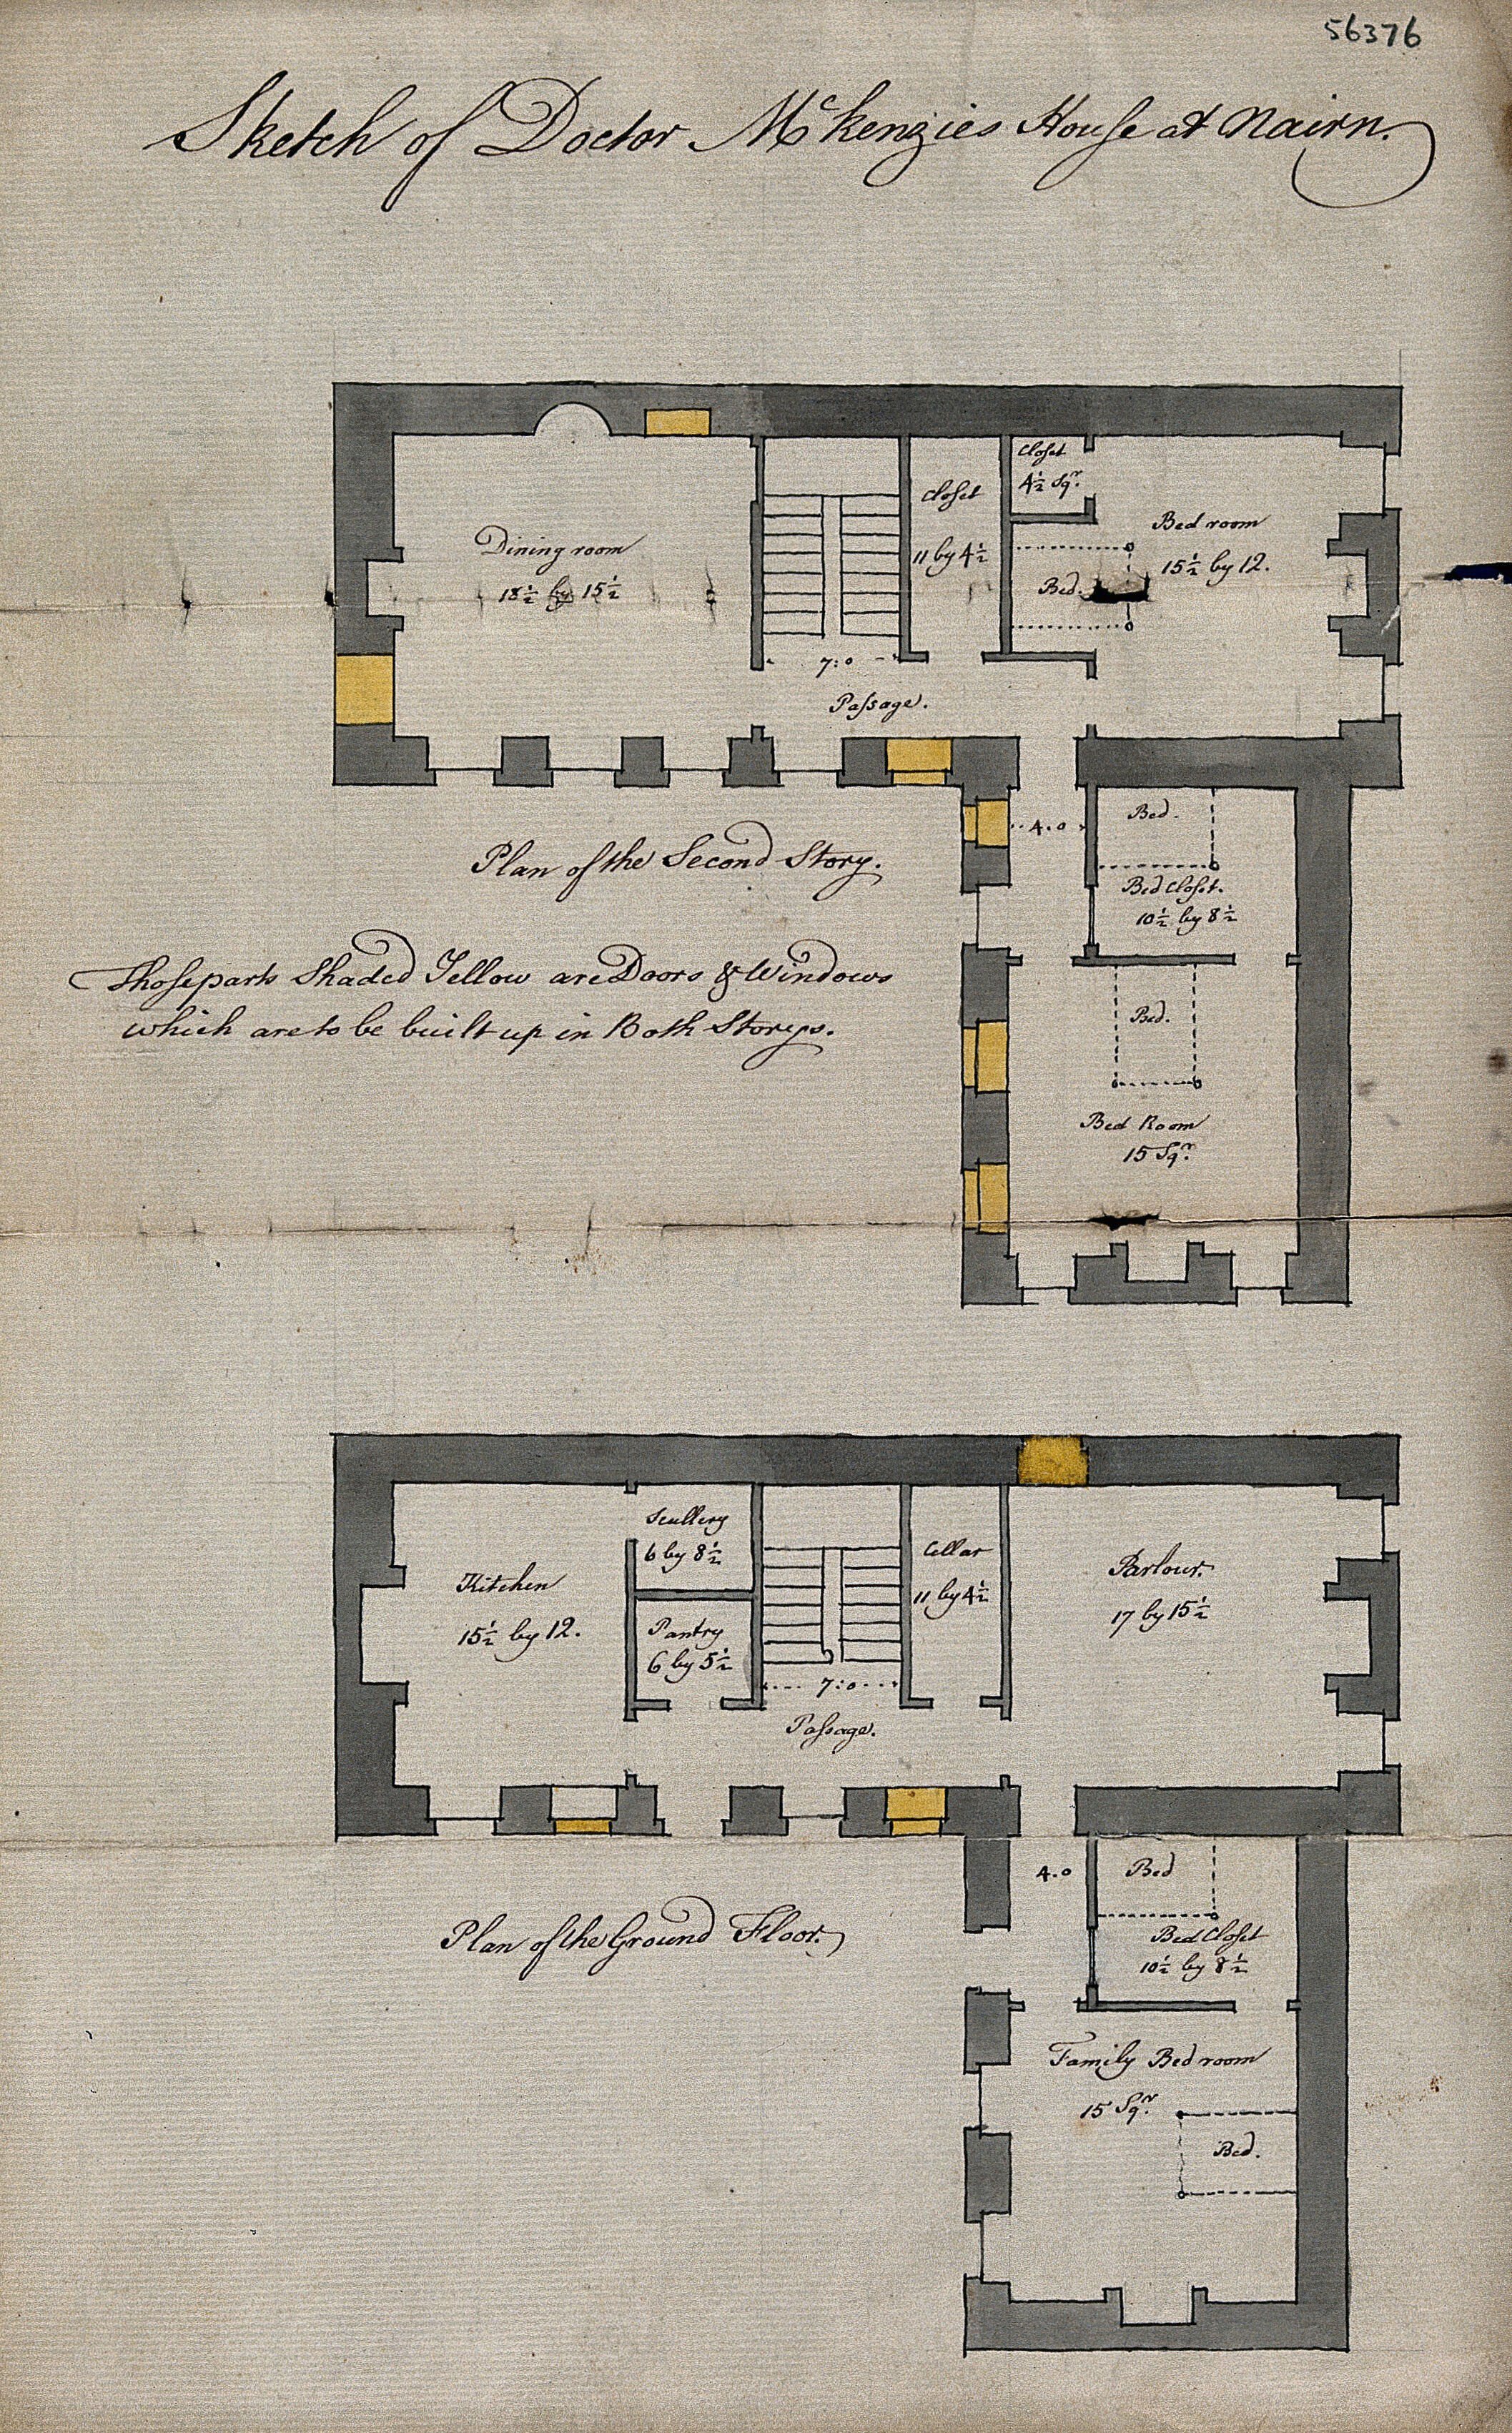 56376
Sketch of Doctor McKenzies House at Nairn.
Dining room
18½ by 15½
Closet
11 by 4½
Closet
4½ Sqr.
Bed room
15½ by 12.
Bed.
7:0
Passage.
4.0
Bed.
Bed Closet.
10½ by 8½
Plan of the Second Story.
Those parts Shaded Yellow are Doors & Windows
which are to be built up in Both Storys.
Bed.
Bed Room
15 Sqr.
Kitchen
15½ by 12.
Scullery
6 by 8½
Pantry
6 by 5½
Cellar
11 by 4½
Parlour.
17 by 15½
7:0
Passage.
4.0
Bed
Bed Closet
10½ by 8½
Plan of the Ground Floor.
Family Bed room
15 Sqr.
Bed.